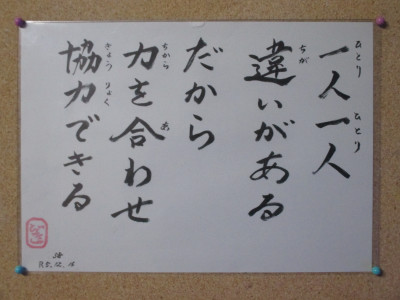 一人一人
ひとり ひとり
違いがある
ちが
だから
力を合わせ
ちから あ
協力できる
きょうりょく